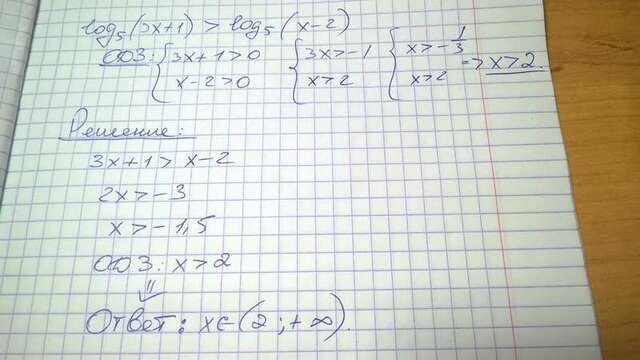 log₅(3x+1) > log₅(x-2)
ОДЗ: { 3x+1>0 { 3x>-1 { x>-1/3
x-2>0 x>2 x>2 => x>2.
Решение:
3x+1 > x-2
2x > -3
x > -1,5
ОДЗ: x>2
⇓
Ответ: x∈(2;+∞).